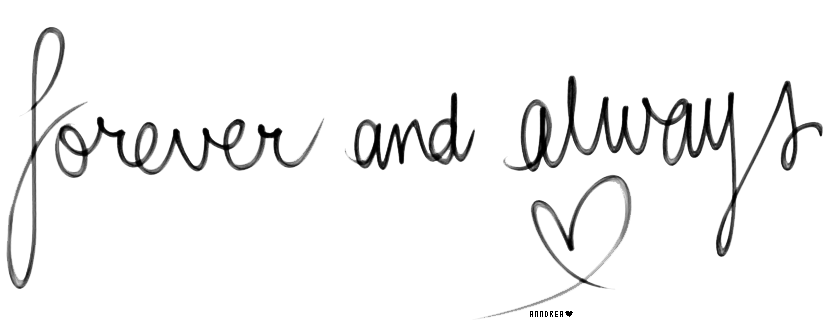 forever and always
ANNDREA♥